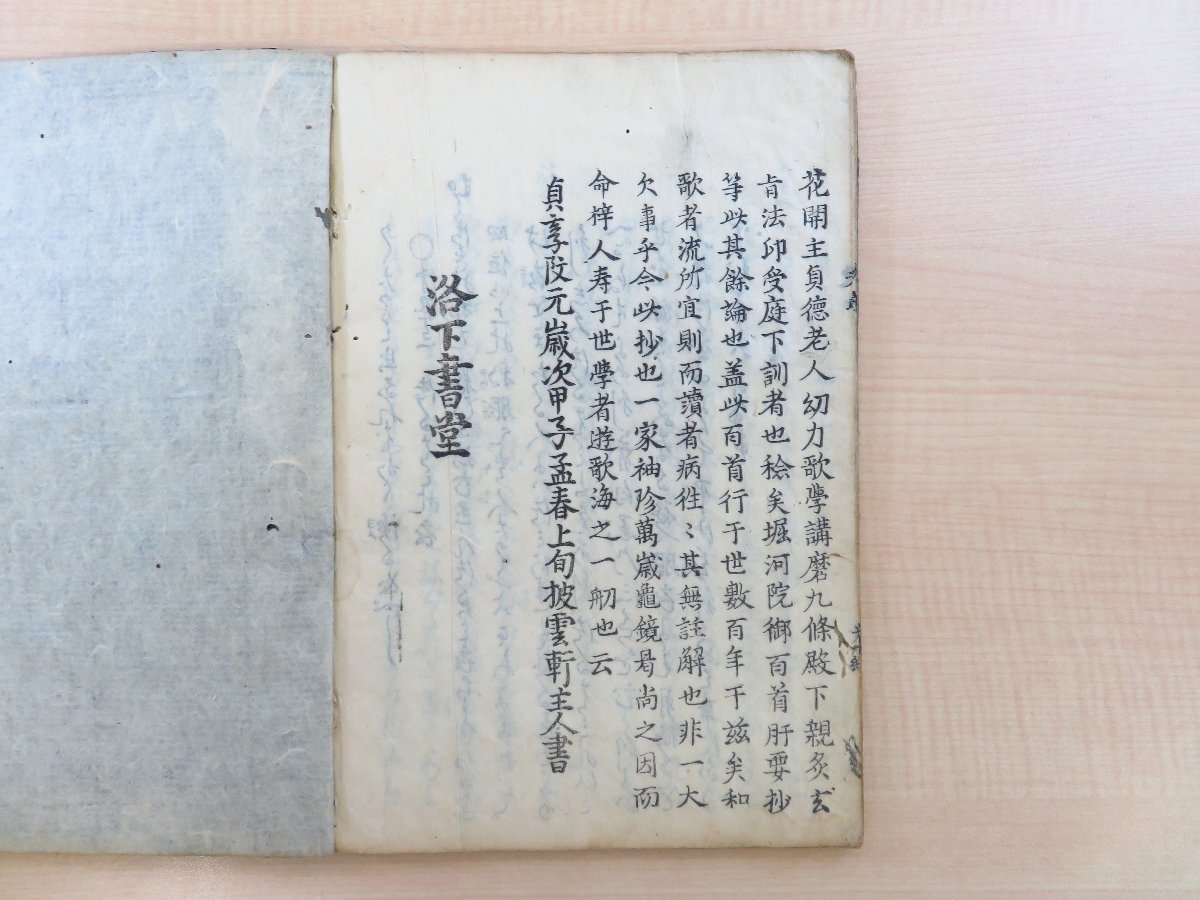 花開主貞德老人幼力歌學講磨九條殿下親炙玄
旨法印受庭下訓者也稔矣堀河院御百首肝要抄
等此其餘論也盖此百首行于世數百年于茲矣和
歌者流所宜則而讀者病徃〻其無註解也非一大
欠事乎今此抄也一家袖珍萬歲龜鏡曷尚之因而
命梓人寿于世學者遊歌海之一舠也云
貞享改元歲次甲子孟春上旬披雲軒主人書
洛下書堂